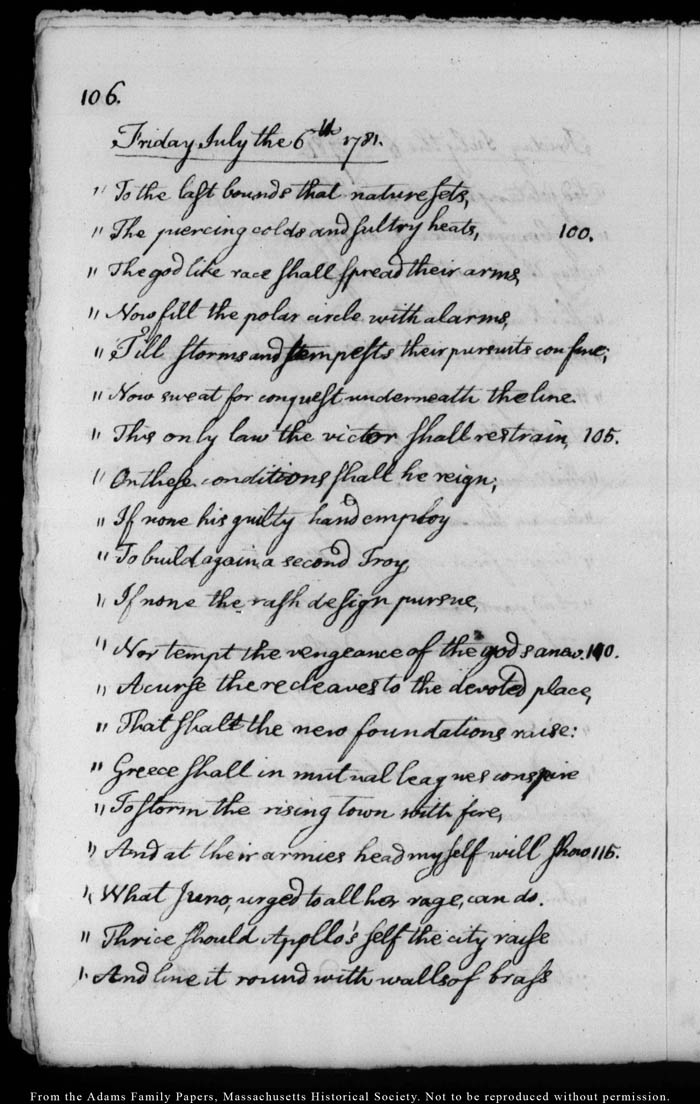 106.
Friday July the 6th 1781.
" To the last bounds that nature sets,
" The piercing colds and sultry heats, 100.
" The god like race shall spread their arms,
" Now fill the polar circle with alarms,
" Till storms and tempests their pursuits confine;
" Now sweat for conquest underneath the line.
" This only law the victor shall restrain, 105.
" On these conditions shall he reign;
" If none his guilty hand employ
" To build again a second Troy,
" If none the rash design pursue,
" Nor tempt the vengeance of the gods anew. 110.
" A curse there cleaves to the devoted place,
" That shall the new foundations raise:
" Greece shall in mutual leagues conspire
" To storm the rising town with fire,
" And at their armies head myself will show 115.
" What Juno, urged to all her rage, can do.
" Thrice should Apollo's self the city raise
" And line it round with walls of brass
From the Adams Family Papers, Massachusetts Historical Society. Not to be reproduced without permission.